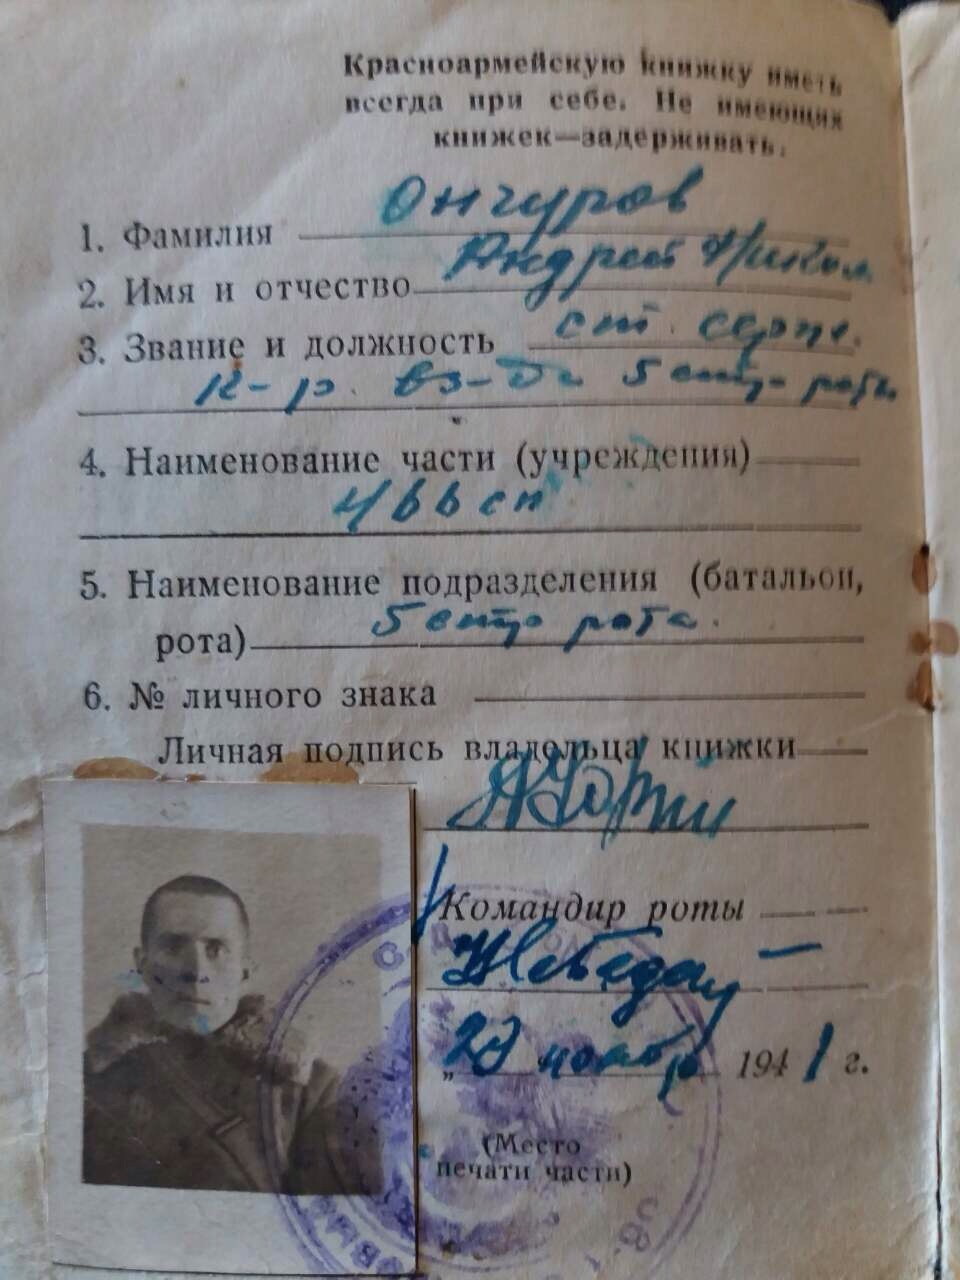 Красноармейскую книжку иметь
всегда при себе. Не имеющих
книжек—задерживать.
1. Фамилия Ончуров
2. Имя и отчество Андрей
3. Звание и должность ст. серж.
к-р. вз-да 5 роты
4. Наименование части (учреждения)
сп
5. Наименование подразделения (батальон,
рота) 5 рота.
6. № личного знака
Личная подпись владельца книжки
Командир роты
" ноябр 1941 г.
(Место
печати части)